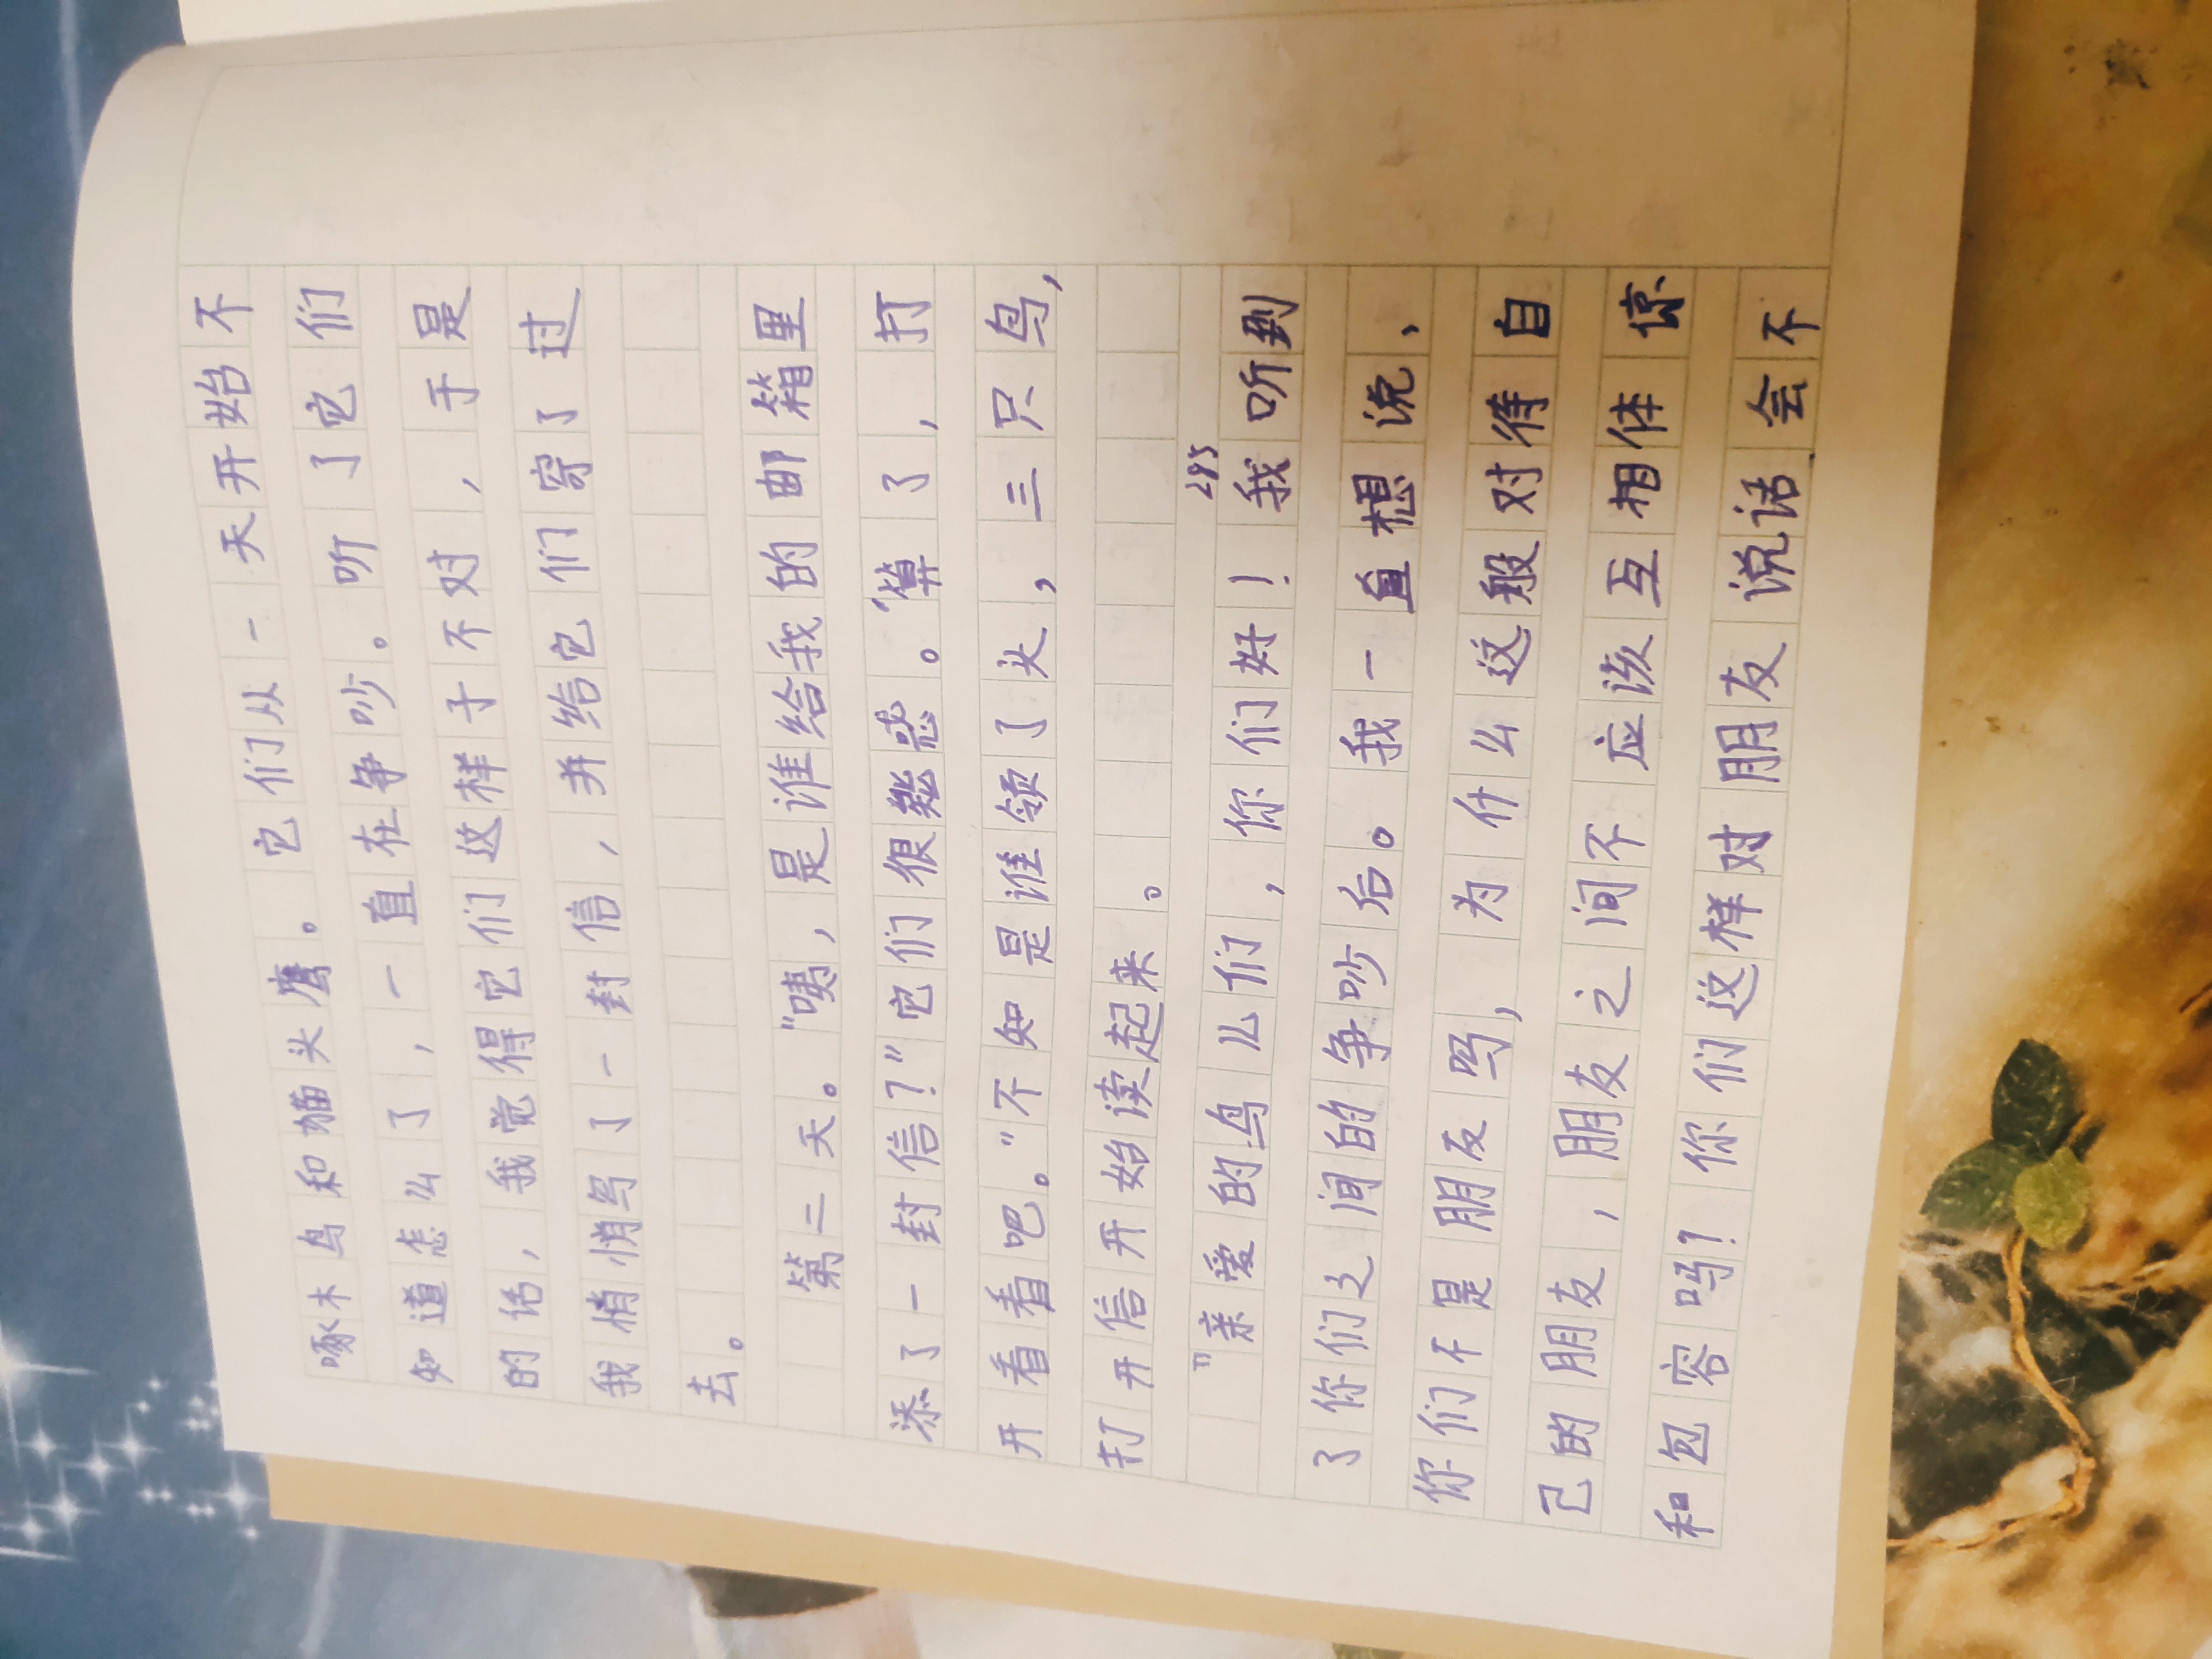 啄木鸟和猫头鹰。它们从一天开始不
知道怎么了，一直在争吵。听了它们
的话，我觉得它们这样子不对，于是
我悄悄写了一封信，并给它们寄了过
去。
第二天。"咦，是谁给我的邮箱里
添了一封信？"它们很疑惑。"算了，打
开看看吧。"不知是谁领了头，三只鸟，
打开信开始读起来。
285
"亲爱的鸟儿们，你们好！我听到
了你们之间的争吵后。我一直想说、
你们不是朋友吗，为什么这般对待自
己的朋友，朋友之间不应该互相体谅
和包容吗？你们这样对朋友说话会不